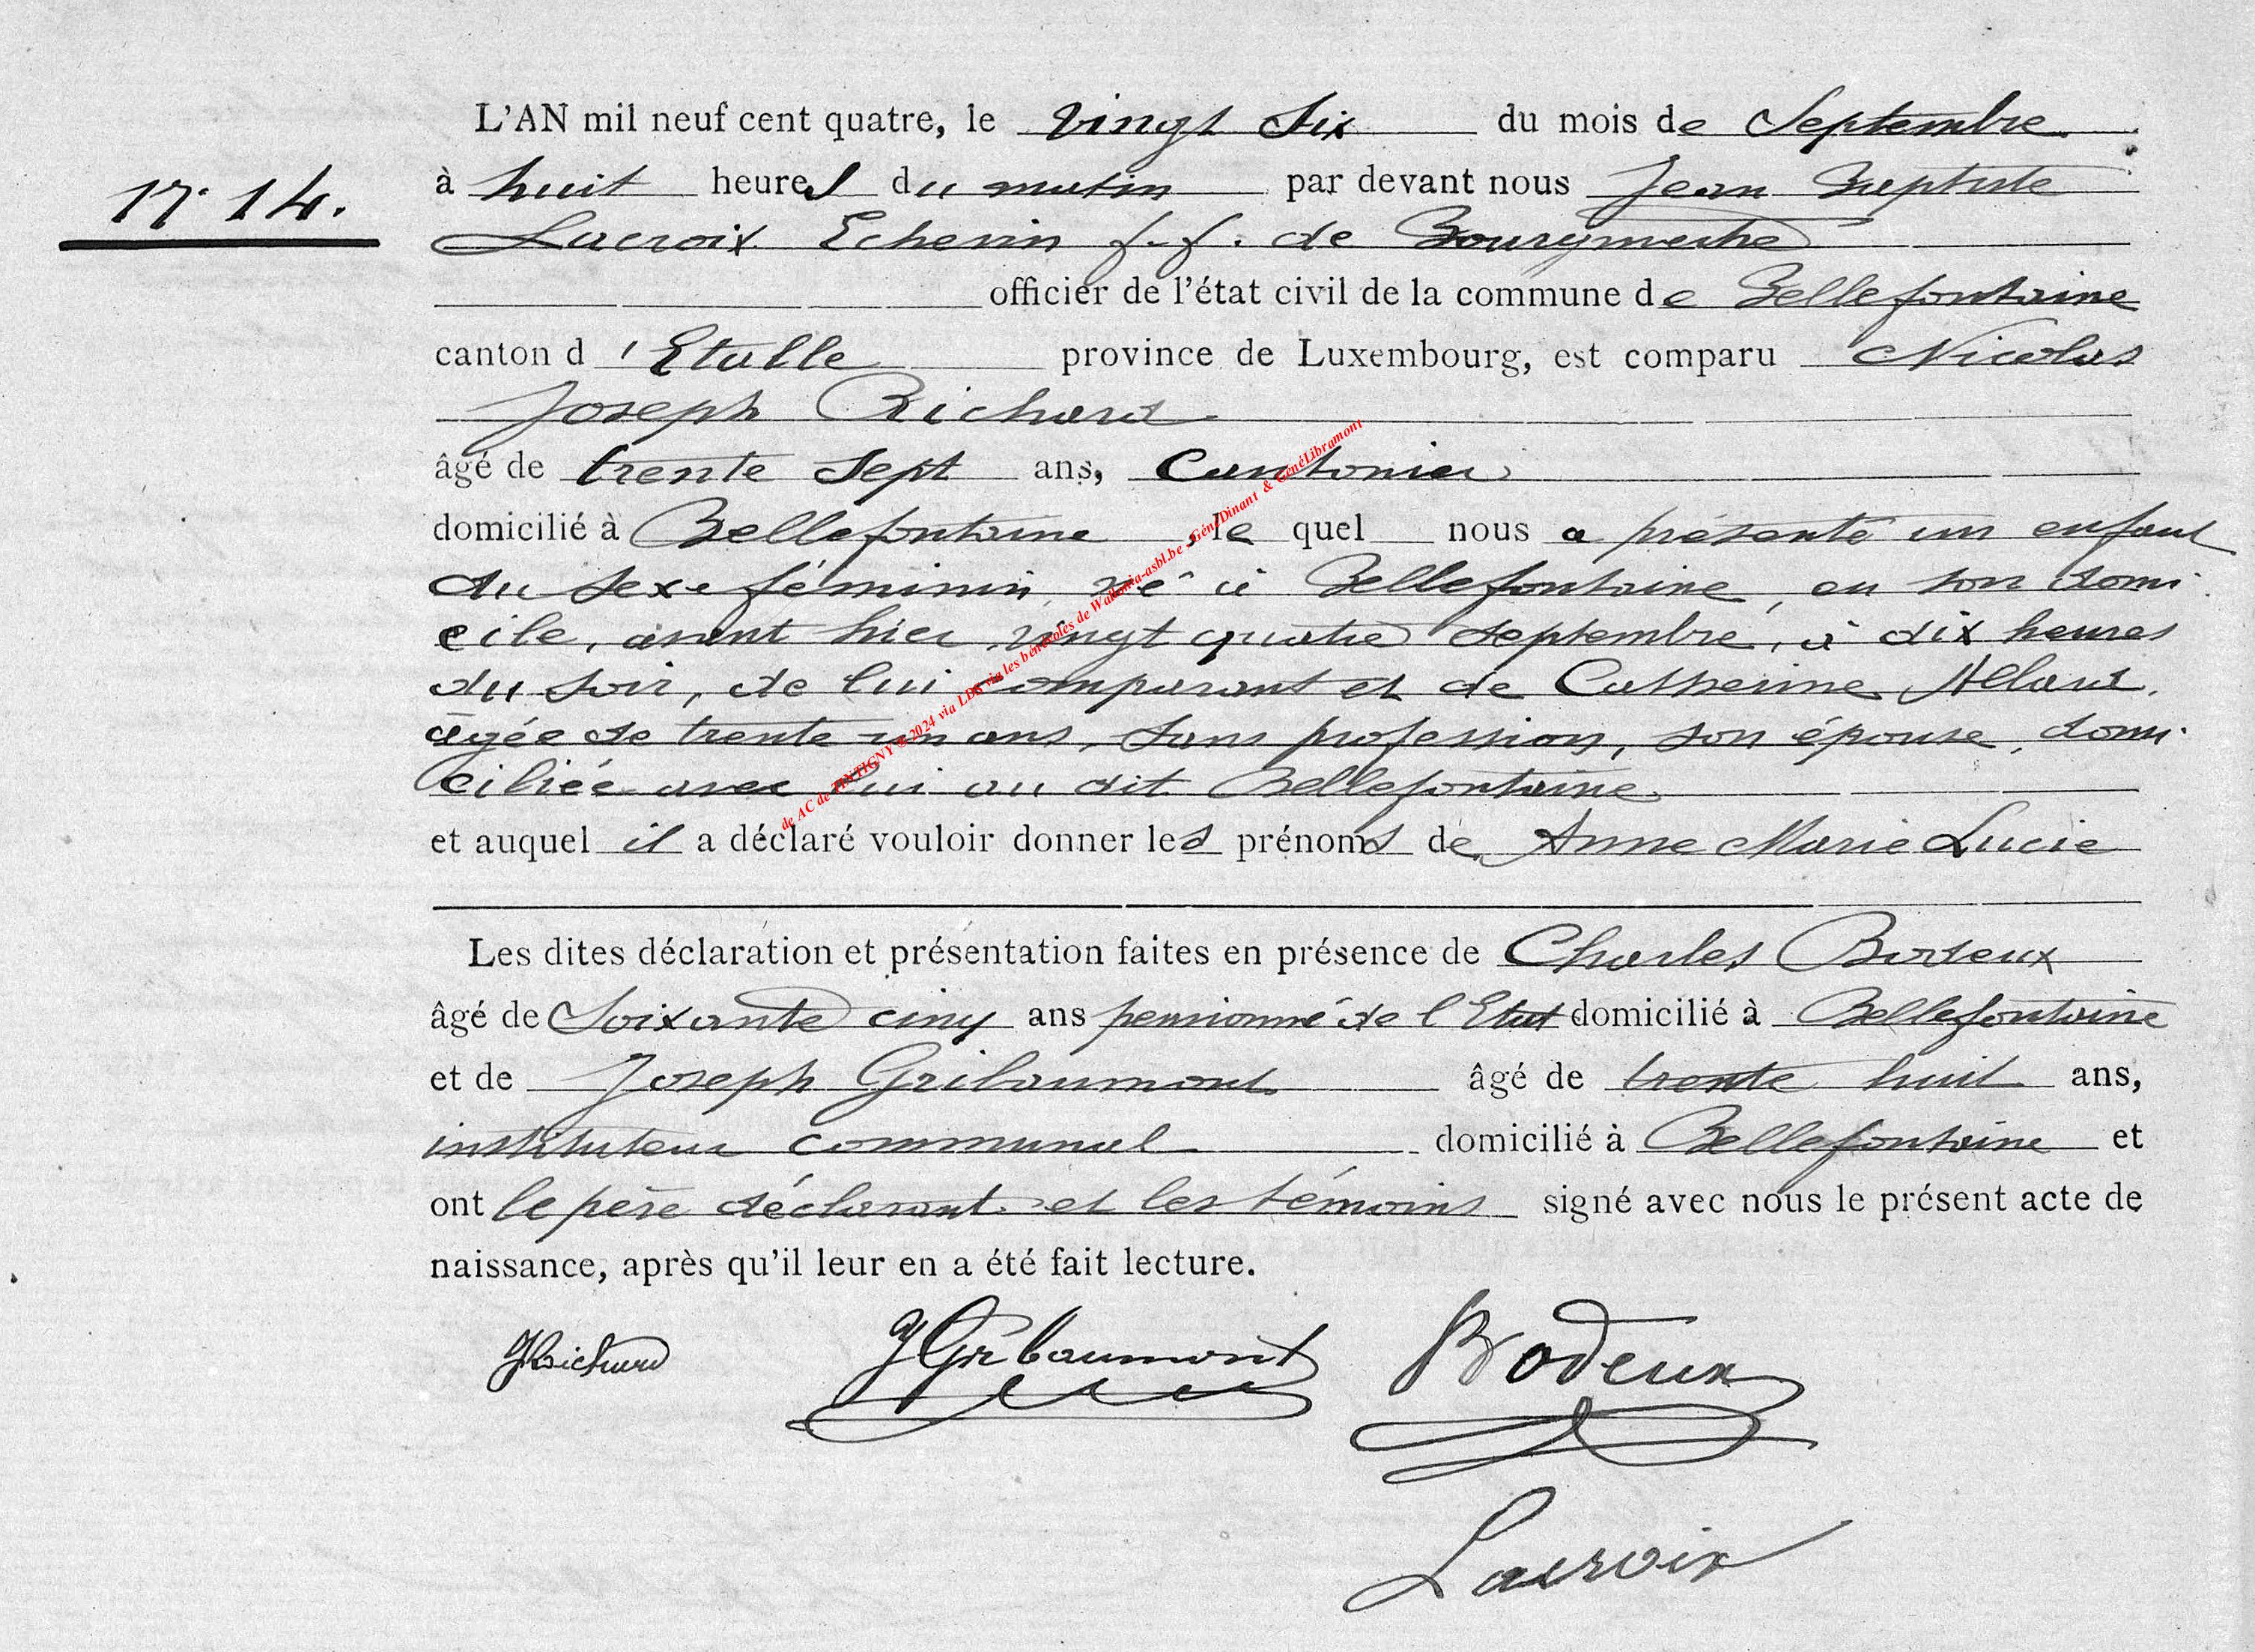 L'AN mil neuf cent quatre, le vingt six du mois de Septembre
N° 14.
à huit heures du matin par devant nous Jean Baptiste
Lacroix Echevin f.f. de Bourgmestre
officier de l'état civil de la commune de Bellefontaine
canton d'Etalle province de Luxembourg, est comparu Nicolas
Joseph Richard
âgé de trente sept ans, Cantonier
domicilié à Bellefontaine, le quel nous a présenté un enfant
du sexe féminin, né à Bellefontaine, en son domi-
cile, avant hier, vingt quatre septembre, à dix heures
du soir, de lui comparant et de Catherine Allard,
âgée de trente un ans, sans profession, son épouse, domi-
ciliée avec lui au dit Bellefontaine
et auquel il a déclaré vouloir donner les prénoms de Anne Marie Lucie
Les dites déclaration et présentation faites en présence de Charles Bodeux
âgé de Soixante cinq ans pensionné de l'Etat domicilié à Bellefontaine
et de Joseph Gribaumont âgé de trente huit ans,
instituteur communal domicilié à Bellefontaine et
ont le père déclarant et les témoins signé avec nous le présent acte de
naissance, après qu'il leur en a été fait lecture.
JRichard JGribaumont Bodeux
Lacroix
de AC de TINTIGNY @ 2024 via LDS via les bénévoles de Wallonia-asbl.be , GénéDinant & GénéLibramont